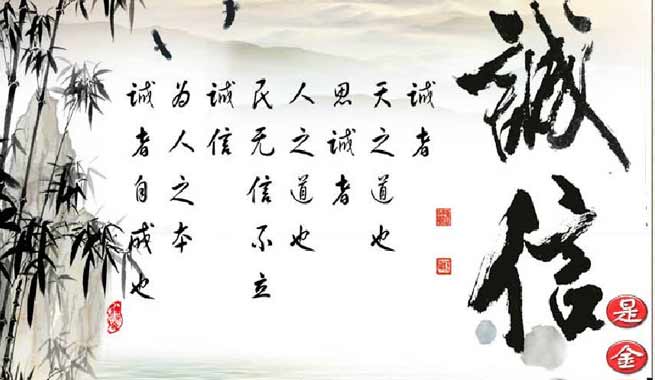 誠信
是金
诚者
天之道也
思诚者
人之道也
民无信不立
诚信
为人之本
诚者自成也